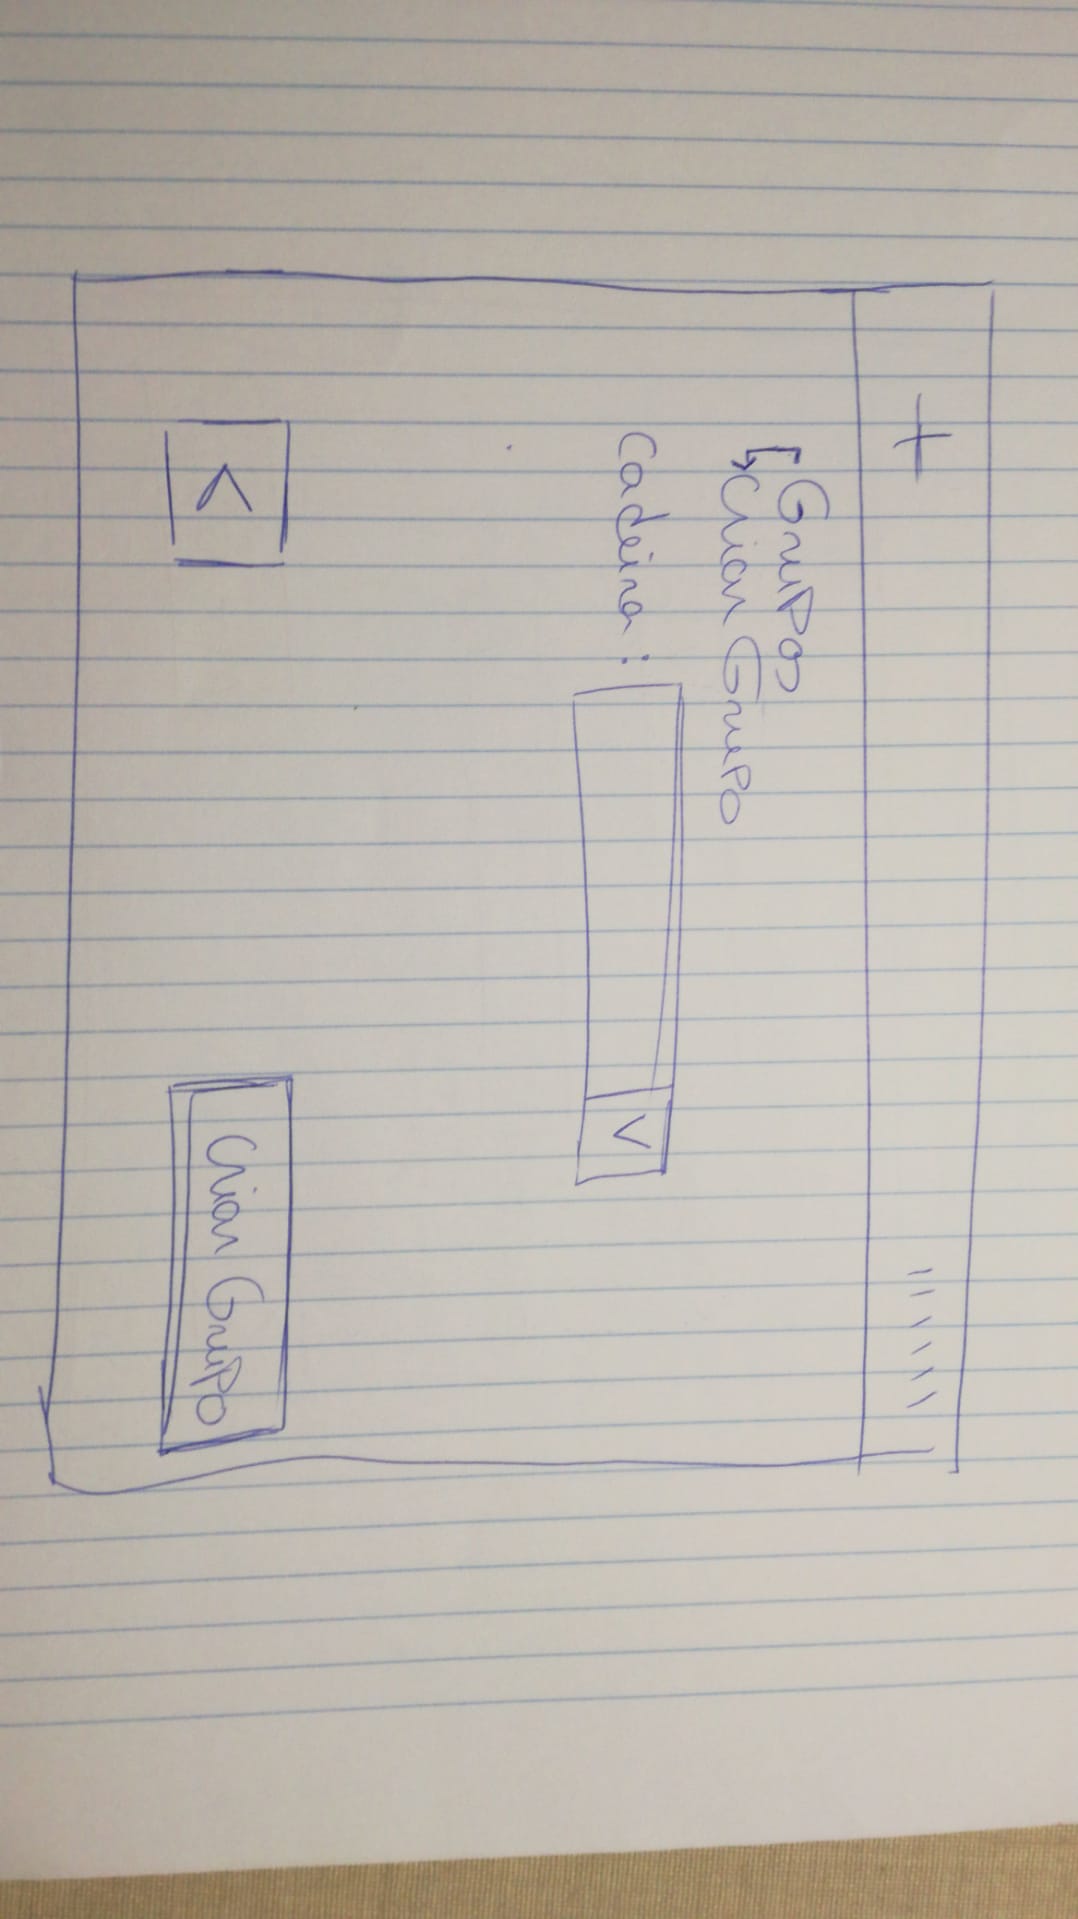 +
Grupos
Criar Grupo
Cadeira:
V
<
Criar Grupo